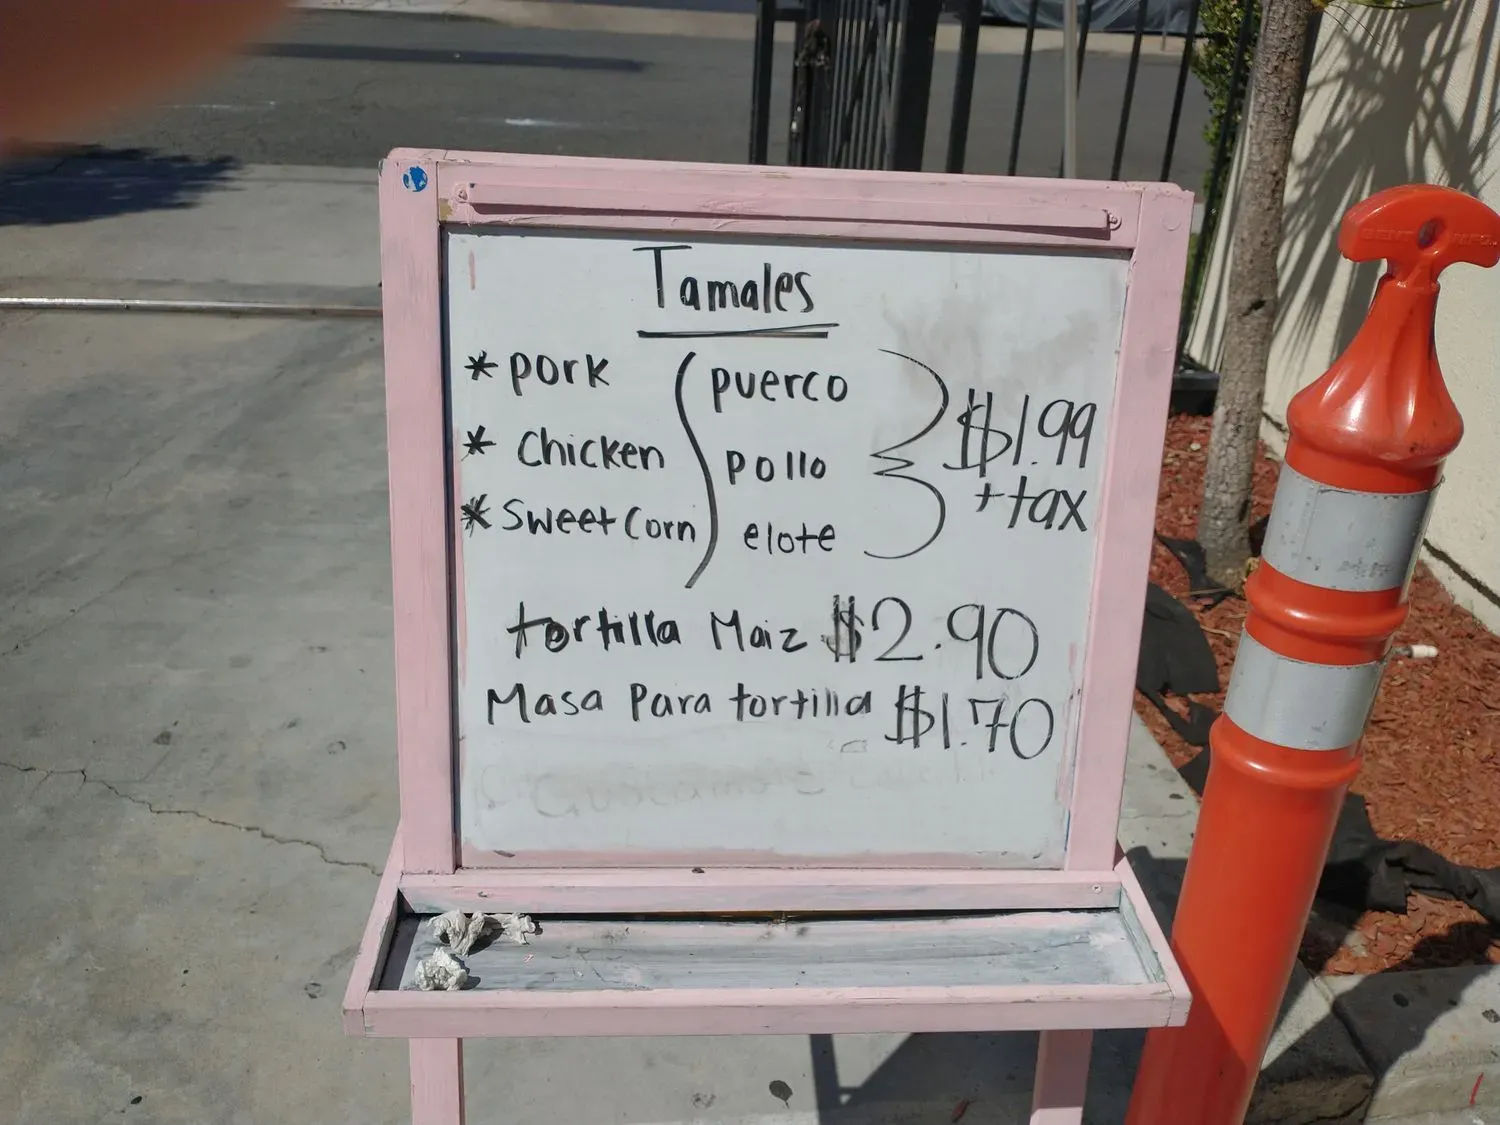 Tamales
* pork puerco
* Chicken pollo $1.99
+ tax
* Sweet Corn elote
tortilla Maiz $2.90
Masa Para tortilla $1.70